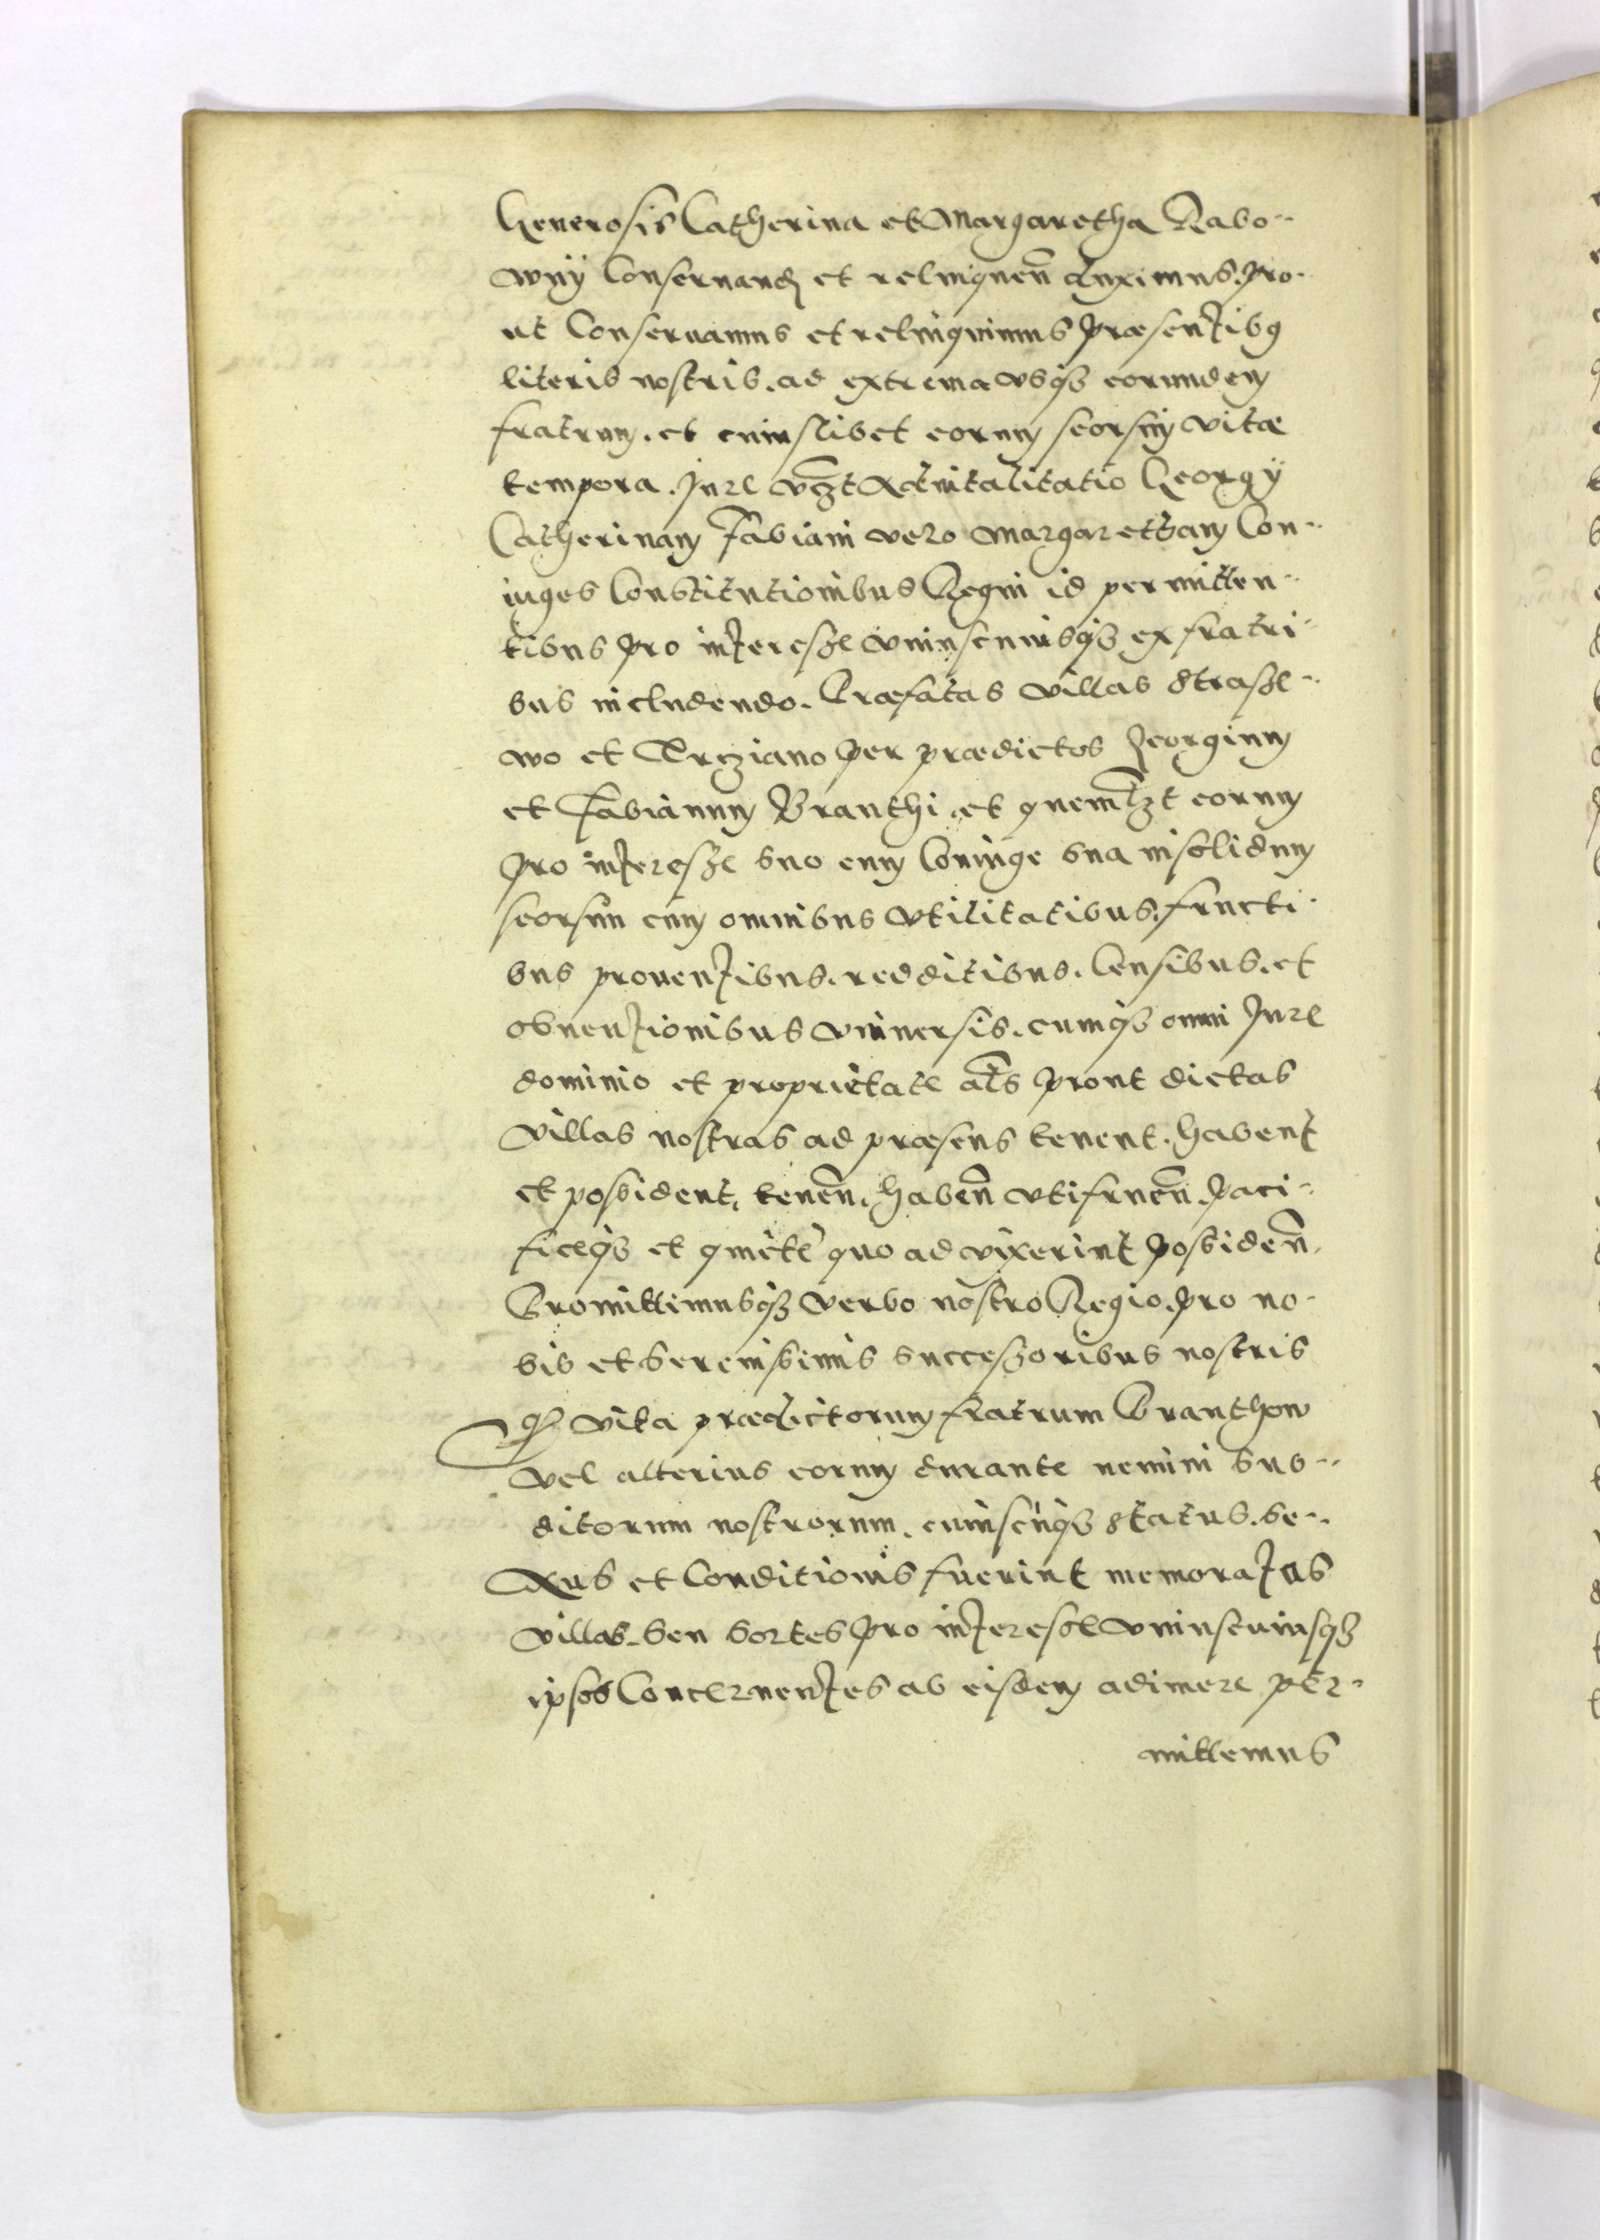 Generosis Catherina et Margaretha Rabo-
wny Conseruand et relinquen̄ duximus. Pro-
ut Conseruamus et relinquimus Præsentibꝰ
literis nostris. ad extrema vsqꝫ eorundem
fratrum. et cuiuslibet eorum seorsim vitæ
tempora. Jure vꝫt Aduitalitatio Georgÿ
Catherinam Fabiani vero Margaretham Con-
iuges Constitutionibus Regni id permitten-
tibus Pro interesse vniuscuiusqꝫ ex fratri-
bus includendo. Præfatas villas Strasze-
wo et Trcziano Per prædictos Georgium
et Fabianum Branthi. et quemlꝫt eorum
Pro interesse suo cum Coniuge sua insolidum
seorsim cum omnibus vtilitatibus. fructi-
bus prouentibus. redditibus. Censibus. et
obuentionibus vniuersis. cumqꝫ omni Jure
dominio et proprietate at̄s Prout dictas
villas nostras ad præsens tenent. habent
et possident, tenen̄. haben̄ vtifruen̄. Paci-
ficeqꝫ et quiete quo ad vixerint Possiden̄.
Promittimusqꝫ verbo nostro Regio. Pro no-
bis et Serenissimis successoribus nostris
Qꝫ vita prædictorum fratrum Branthow
vel alterius eorum durante nemini sub-
ditorum nostrorum. cuiuscunqꝫ status. se-
xus et Conditionis fuerint memoratas
villas. seu sortes Pro interesse vniuscuiusqꝫ
ipsos Concernentes ab eisdem adimere per-
mittemus